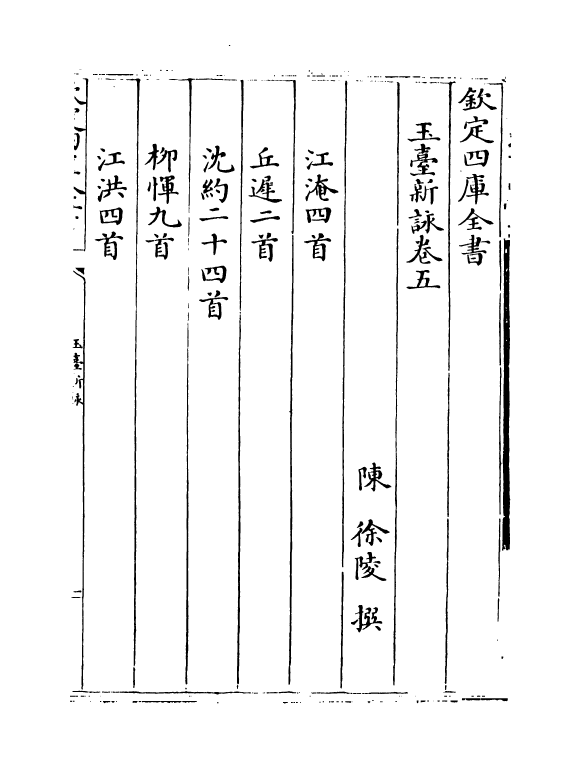 欽定四庫全書
玉臺新詠卷五
陳 徐陵 撰
江淹四首
丘遲二首
沈約二十四首
柳惲九首
江洪四首
玉臺新詠